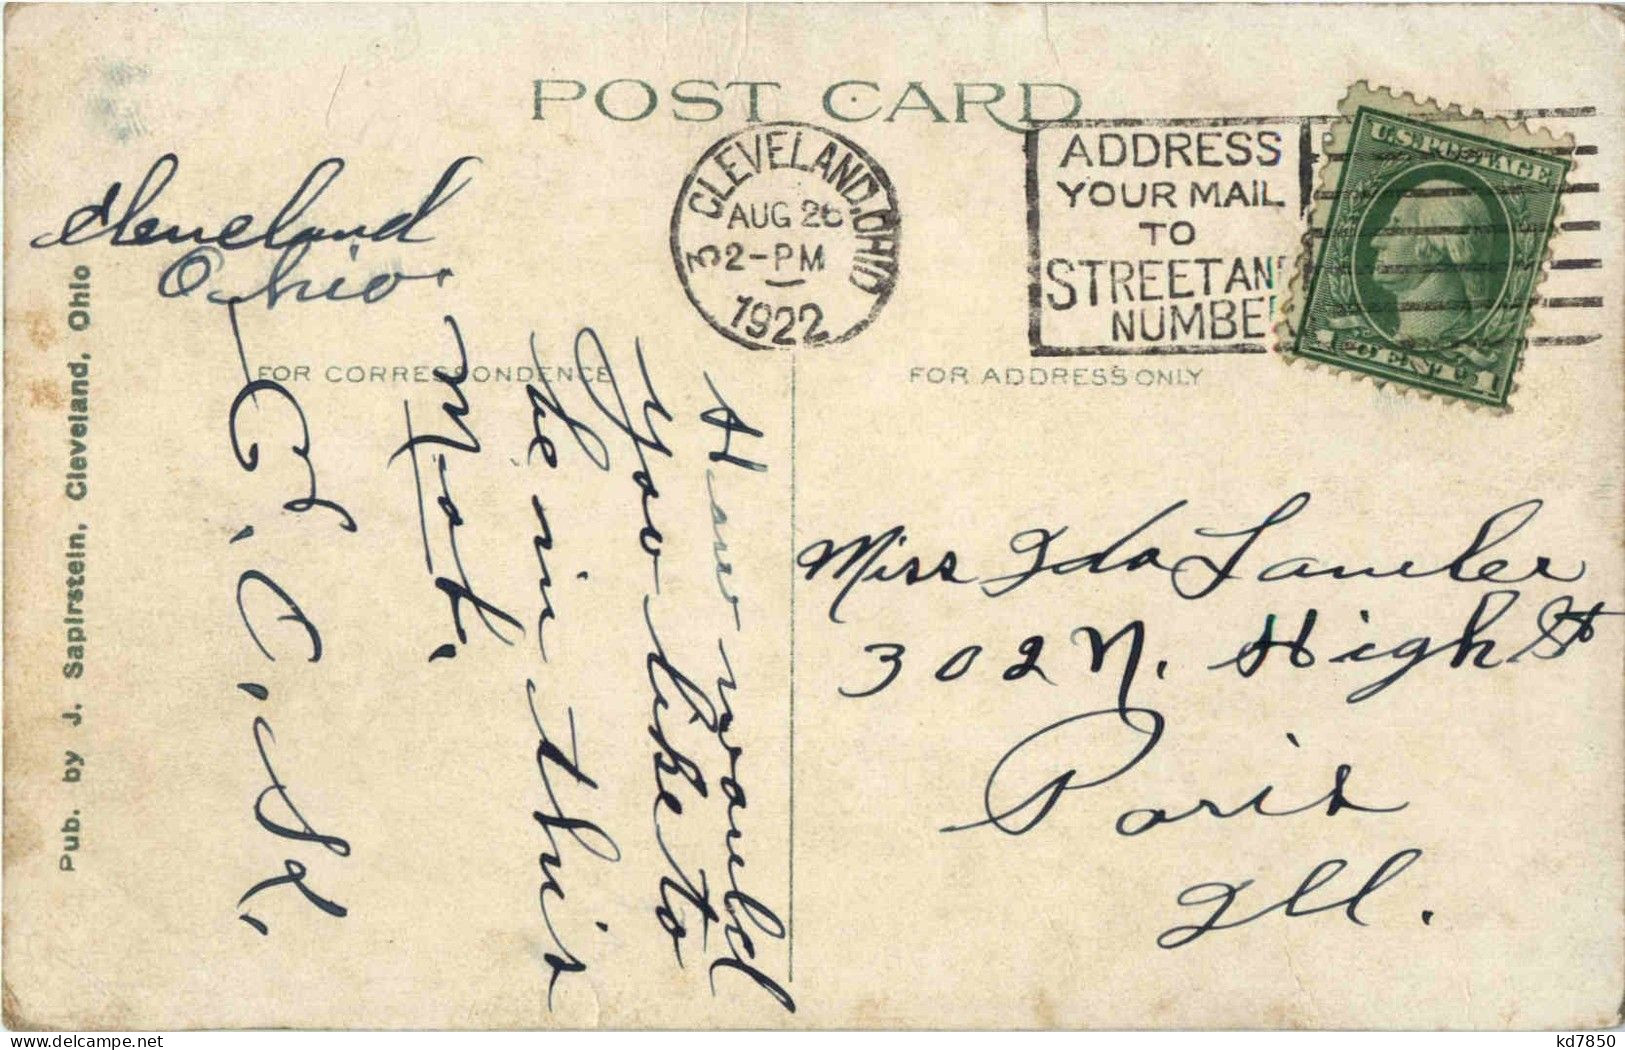 POST CARD
CLEVELAND, OHIO
3
AUG 26
2-PM
1922
ADDRESS
YOUR MAIL
TO
STREET AND
NUMBE
U.S. POSTAGE
1 CENT 1
Cleveland
Ohio.
FOR CORRESPONDENCE
FOR ADDRESS ONLY
How would
you like to
be in this
Mob.
C. K.
Miss Ida
302 N. High St
Paris
Ill.
Pub. by J. Sapirstein, Cleveland, Ohio
kd7850